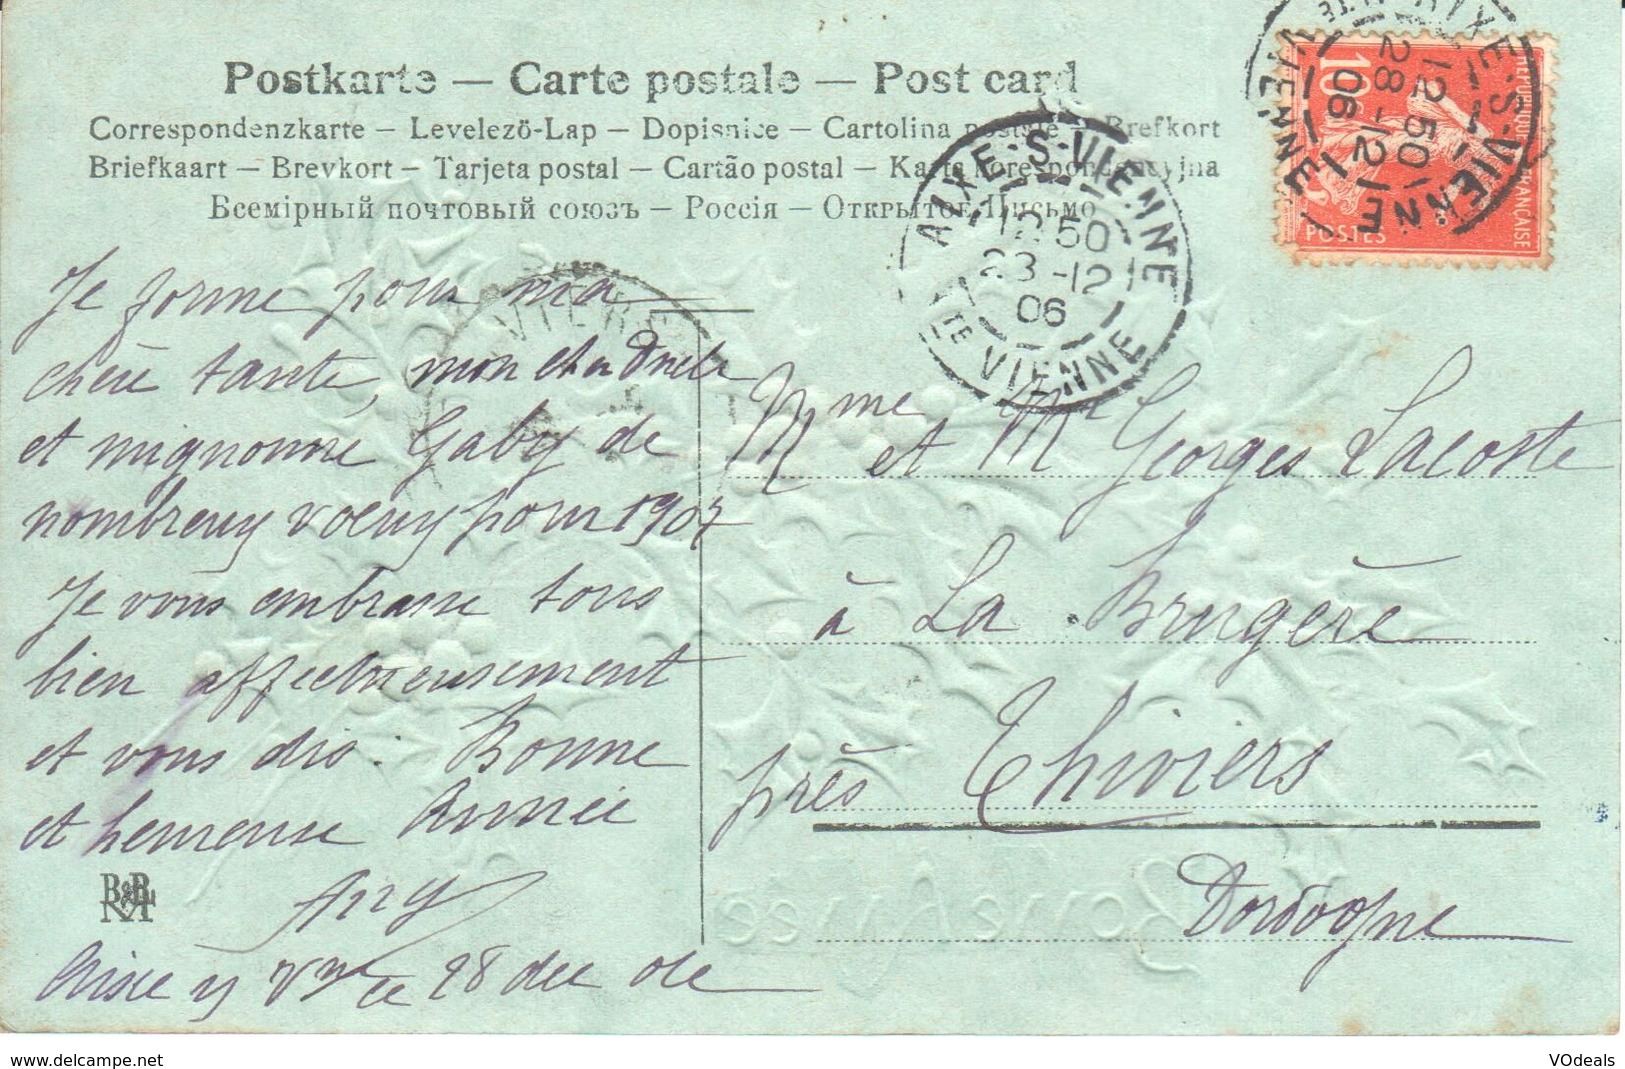 Postkarte — Carte postale — Post card
Correspondenzkarte – Levelező-Lap – Dopisnice – Cartolina postale – Brefkort
Briefkaart – Brevkort – Tarjeta postal – Cartão postal – Karta korespondencyjna
Всемірный почтовый союзъ – Россія – Открытое Письмо
RÉPUBLIQUE FRANÇAISE
10c
POSTES
AIXE-S-VIENNE
12 50
28-12
06
HTE VIENNE
AIXE-S-VIENNE
12 50
28-12
06
HTE VIENNE
Je forme pour ma
chère tante, mon cher Oncle
et mignonne Gaby de
nombreux voeux pour 1907
Je vous embrasse tous
bien affectueusement
et vous dis : Bonne
et heureuse Année
Aixe s/ Vne ce 28 dec
Mme et Mr Georges Lacoste
à La Brugère
près Thiviers
Dordogne
Bonne Année
www.delcampe.net
VOdeals